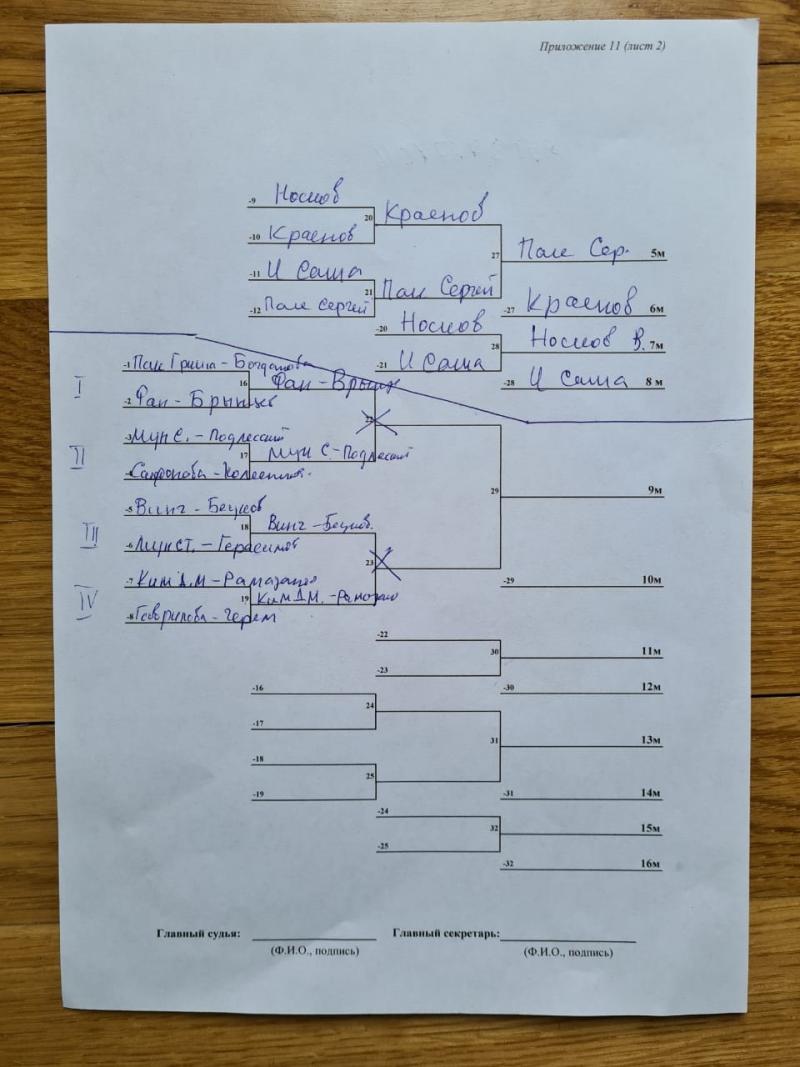 Приложение 11 (лист 2)
-9 Носков
20 Краснов
-10 Краснов
27 Пак Сер. 5м
-11 И Саша
21 Пак Сергей
-12 Пак Сергей
-27 Краснов 6м
-20 Носков
28 Носков В. 7м
-21 И Саша
-28 И Саша 8 м
-1 Пак Гриша - Богданова
I 16 Фан - Брынцев
-2 Фан - Брынцев
22
-3 Мун С. - Подлесский
II 17 Мун С. - Подлесский
-4 Сафронова -
29 9м
-5 Винг -
III 18 Винг -
-6 Мун СТ. - Герасимов
23
-7 Ким Д.М - Рамазанов
-29 10м
IV 19 Ким Д.М. -
-8 Гаврилова - Черем
-22
30 11м
-23
-16
-30 12м
24
-17
31 13м
-18
25
-19
-31 14м
-24
32 15м
-25
-32 16м
Главный судья: Главный секретарь:
(Ф.И.О., подпись) (Ф.И.О., подпись)